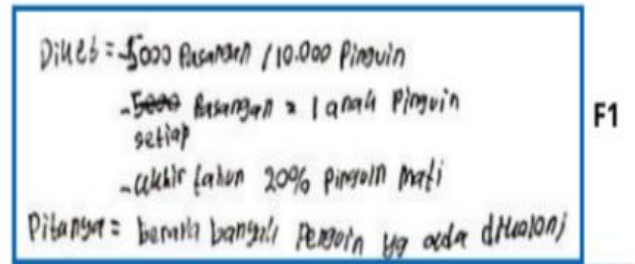 Diket = - 5000 Pasangan / 10.000 Pinguin
- 5000 Pasangan = 1 anak Pinguin
setiap
- akhir tahun 20% Pinguin mati
Ditanya = berapa banyak Penguin yg ada dikoloni
F1